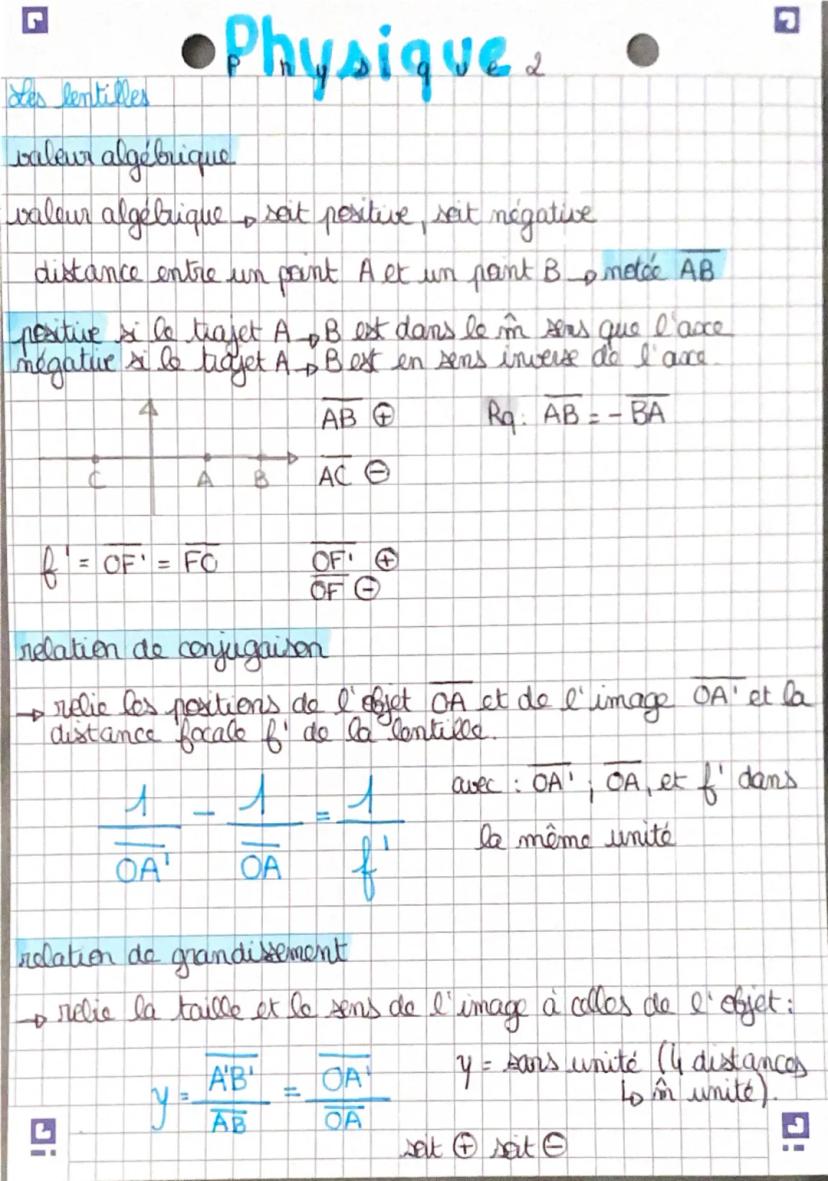 Physique 2
Les lentilles
valeur algébrique
valeur algébrique → soit positive, soit négative
distance entre un point A et un point B → notée A̅B̅
positive si le trajet A → B est dans le m̂ sens que l'axe
négative si le trajet A → B est en sens inverse de l'axe.
A̅B̅ ⊕ Rq: A̅B̅ = - B̅A̅
C A B A̅C̅ ⊖
f' = O̅F̅'̅ = F̅O̅ O̅F̅'̅ ⊕
O̅F̅ ⊖
relation de conjugaison
→ relie les positions de l'objet O̅A̅ et de l'image O̅A̅'̅ et la
distance focale f' de la lentille.
1/O̅A̅'̅ - 1/O̅A̅ = 1/f' avec : O̅A̅'̅ ; O̅A̅, et f' dans
la même unité
relation de grandissement
→ relie la taille et le sens de l'image à celles de l'objet :
y = A̅'̅B̅'̅/A̅B̅ = O̅A̅'̅/O̅A̅ y = sans unité (4 distances
↳ m̂ unité).
soit ⊕ soit ⊖